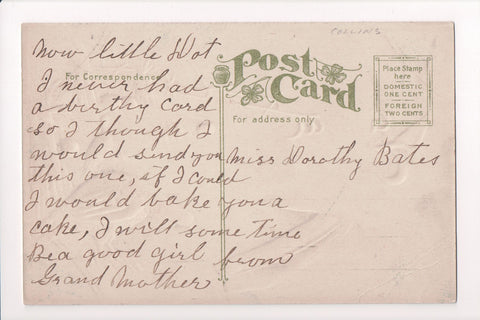 COLLINS
Now little Dot
I never had
a birthy Card
so I though I
would send you
this one, if I could
I would bake you a
cake, I will some time
Be a good girl from
Grand Mother
For Correspondence
Post
Card
For address only
Place Stamp
here
DOMESTIC
ONE CENT
FOREIGN
TWO CENTS
Miss Dorothy Bates